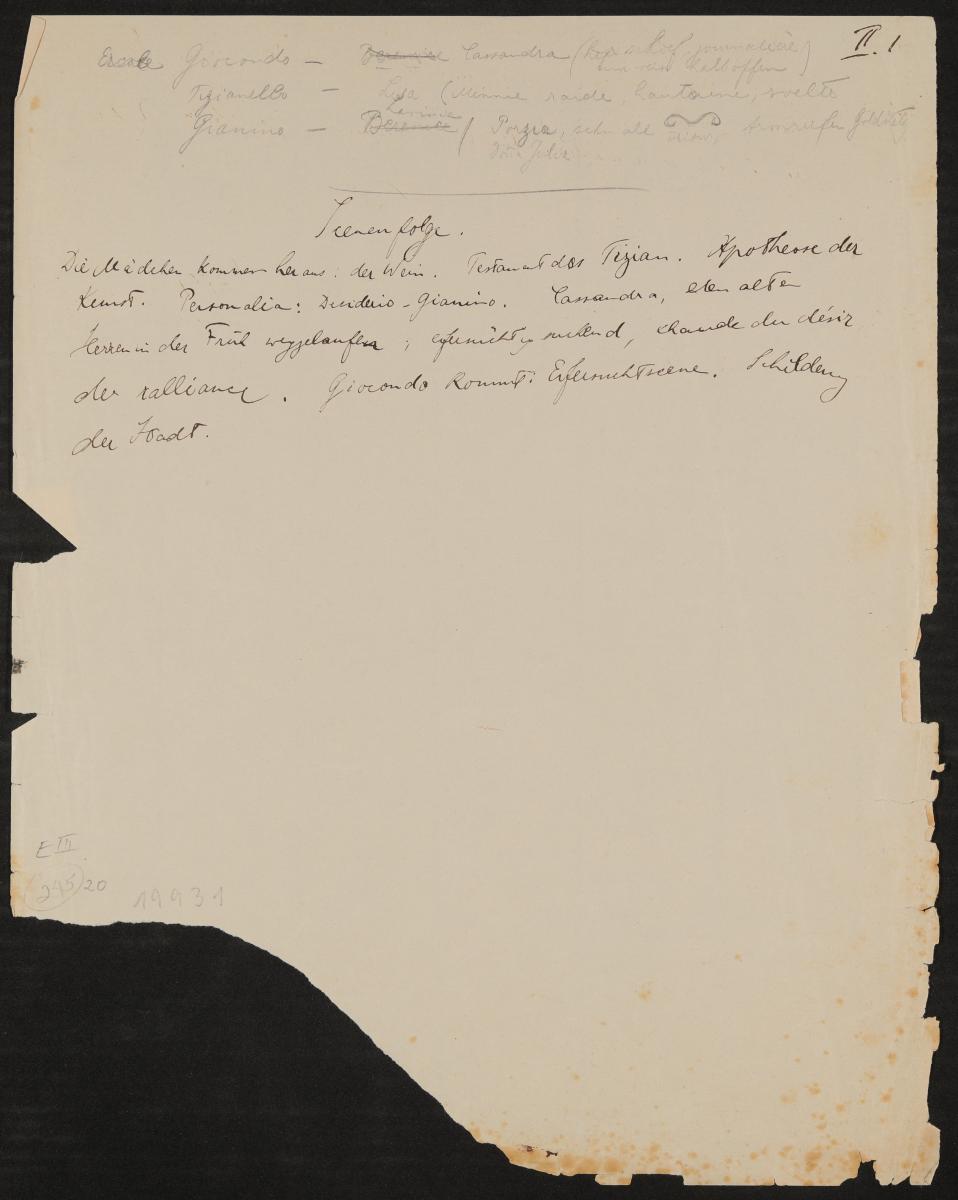 II. 1
Ercole Giocondo – Cassandra (Kopf
Tizianello – Lisa (Minnie raide, hautaine, svelte
Lavinia
Gianino – Porzia, sehr alt Armreifen
Scenenfolge.
Die Mädchen kommen heraus: der Wein. Testament des Tizian. Apotheose der
Kunst. Personalia: Desiderio – Gianino. Cassandra, eben alten
Herren in der Früh weggelaufen; suchend, chaude du désir
der ralliance. Giocondo kommt: Eifersuchtscene. Schilderg
der Stadt.
E III
245/20
19931